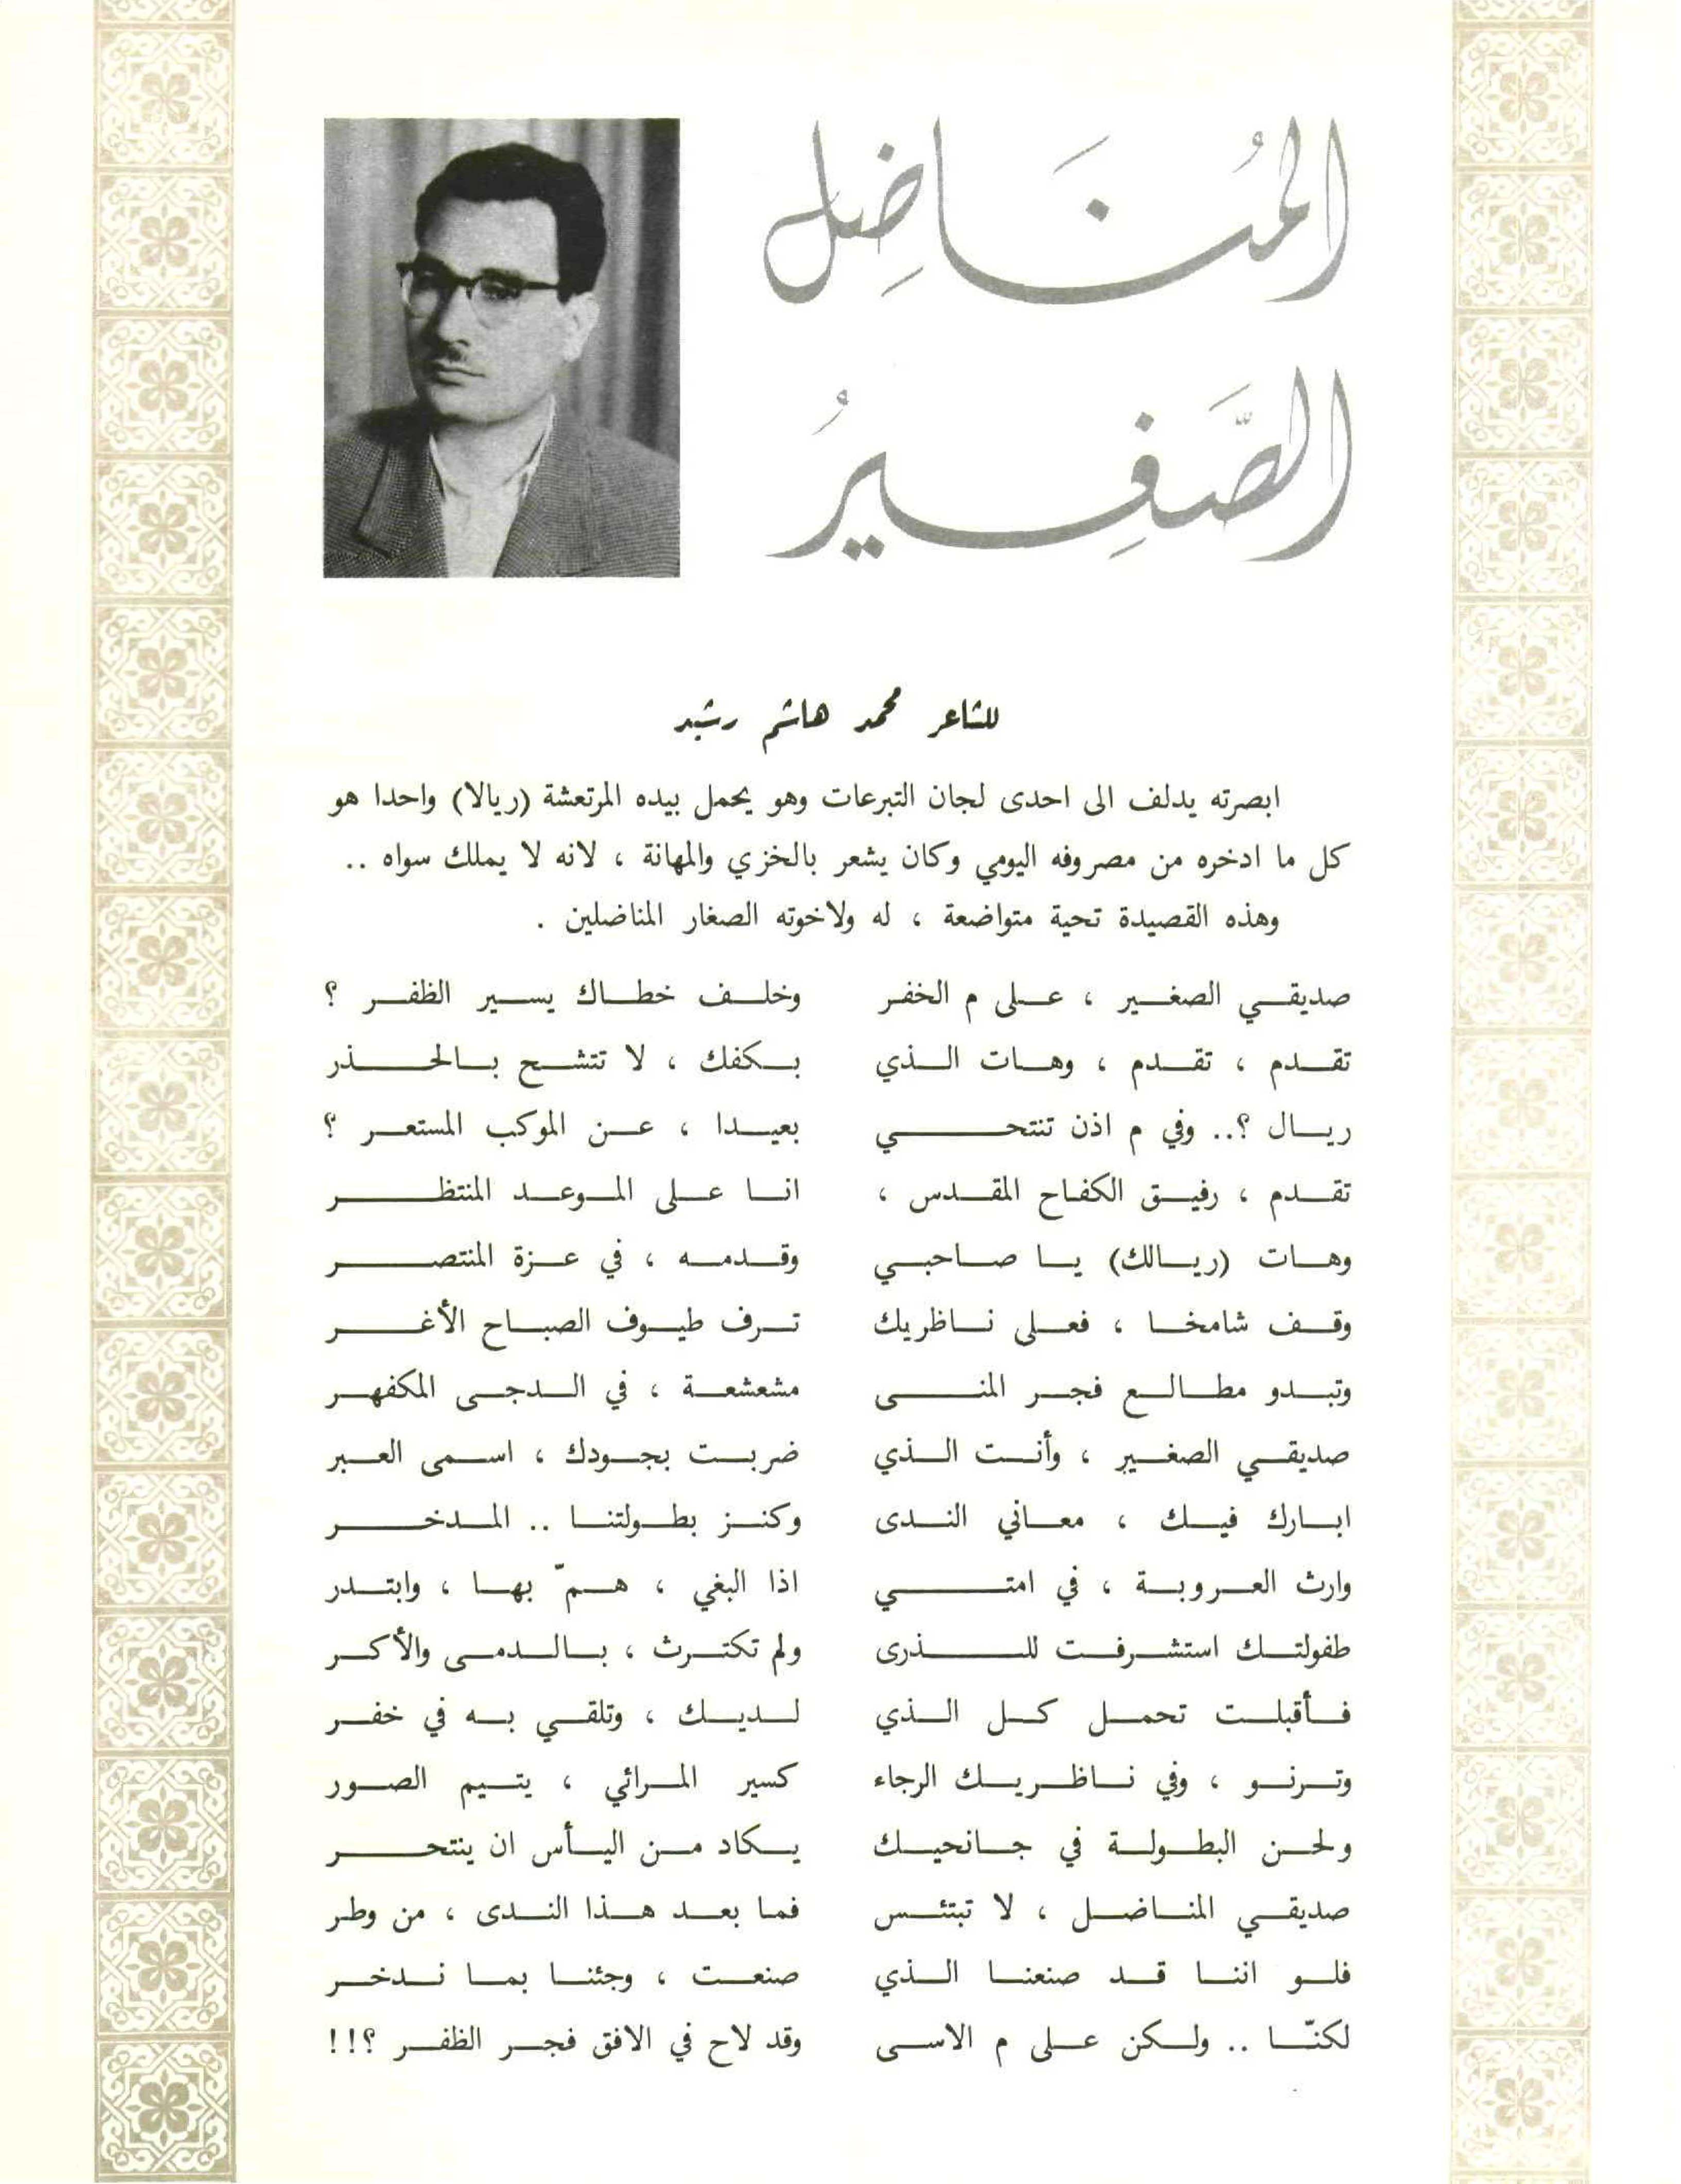 المُنَاضِل
الصَّغِيرُ
للشاعر محمد هاشم رشيد
ابصرته يدلف الى احدى لجان التبرعات وهو يحمل بيده المرتعشة (ريالا) واحدا هو
كل ما ادخره من مصروفه اليومي وكان يشعر بالخزي والمهانة ، لانه لا يملك سواه ..
وهذه القصيدة تحية متواضعة ، له ولاخوته الصغار المناضلين .
صديقي الصغير ، على م الخفر وخلف خطاك يسير الظفر ؟
تقدم ، تقدم ، وهات الذي بكفك ، لا تتشح بالحذر
ريال ؟.. وفي م اذن تنتحي بعيدا ، عن الموكب المستعر ؟
تقدم ، رفيق الكفاح المقدس ، انا على الموعد المنتظر
وهات (ريالك) يا صاحبي وقدمه ، في عزة المنتصر
وقف شامخا ، فعلى ناظريك ترف طيوف الصباح الأغر
وتبدو مطالع فجر المنى مشعشعة ، في الدجى المكفهر
صديقي الصغير ، وأنت الذي ضربت بجودك ، اسمى العبر
ابارك فيك ، معاني الندى وكنز بطولتنا .. المدخر
وارث العروبة ، في امتي اذا البغي ، همّ بها ، وابتدر
طفولتك استشرفت للذرى ولم تكترث ، بالدمى والأكر
فأقبلت تحمل كل الذي لديك ، وتلقي به في خفر
وترنو ، وفي ناظريك الرجاء كسير المرائي ، يتيم الصور
ولحن البطولة في جانحيك يكاد من اليأس ان ينتحر
صديقي المناضل ، لا تبتئس فما بعد هذا الندى ، من وطر
فلو اننا قد صنعنا الذي صنعت ، وجئنا بما ندخر
لكنّا .. ولكن على م الاسى وقد لاح في الافق فجر الظفر ؟!!